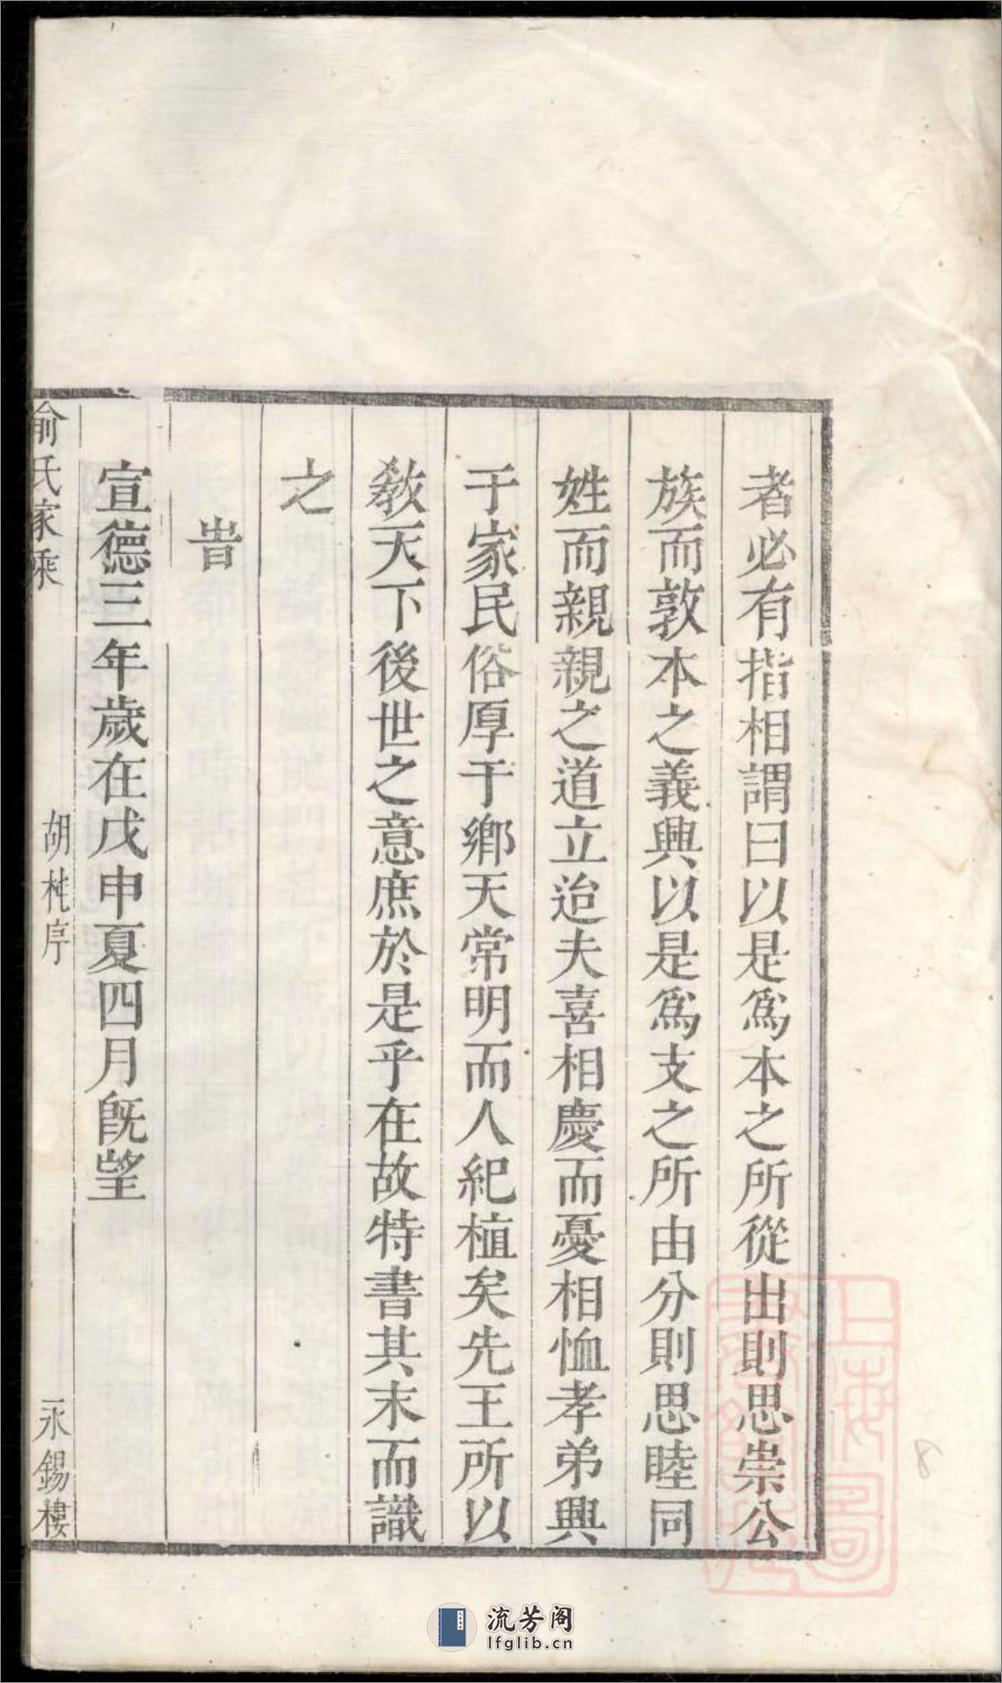 者必有指相謂曰以是為本之所從出則思崇公
族而敦本之義興以是為支之所由分則思睦同
姓而親親之道立治夫喜相慶而憂相恤孝弟興
于家民俗厚于鄉天常明而人紀植矣先王所以
教天下後世之意庶於是乎在故特書其末而識
之
旹
宣德三年歲在戊申夏四月旣望
俞氏家乘
胡 序
永錫樓
上海圖書館藏
8
流芳阁
lfglib.cn